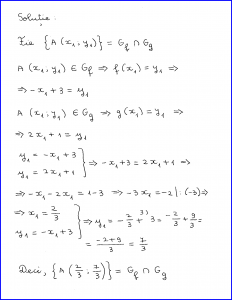 Soluție:
Fie {A(x₁, y₁)} = G_f ∩ G_g
A(x₁, y₁) ∈ G_f ⇒ f(x₁) = y₁ ⇒
⇒ -x₁ + 3 = y₁
A(x₁, y₁) ∈ G_g ⇒ g(x₁) = y₁ ⇒
⇒ 2x₁ + 1 = y₁
y₁ = -x₁ + 3
y₁ = 2x₁ + 1 } ⇒ -x₁ + 3 = 2x₁ + 1 ⇒
⇒ -x₁ - 2x₁ = 1 - 3 ⇒ -3x₁ = -2 | : (-3) ⇒
⇒ x₁ = 2/3
y₁ = -x₁ + 3 } ⇒ y₁ = -2/3 + ³⁾3 = -2/3 + 9/3 =
= (-2+9)/3 = 7/3
Deci, {A(2/3 ; 7/3)} = G_f ∩ G_g